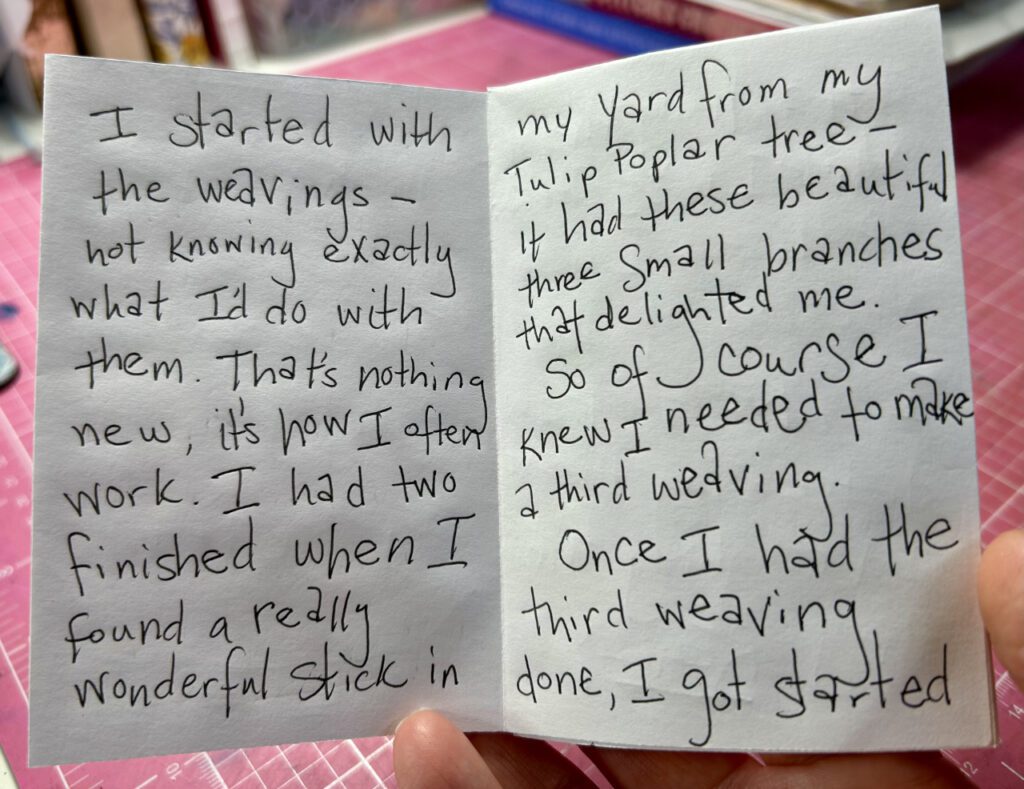 I started with
the weavings –
not knowing exactly
what I'd do with
them. That's nothing
new, it's how I often
work. I had two
finished when I
found a really
wonderful stick in
my yard from my
Tulip Poplar tree –
it had these beautiful
three small branches
that delighted me.
So of course I
knew I needed to make
a third weaving.
Once I had the
third weaving
done, I got started
10
14
12